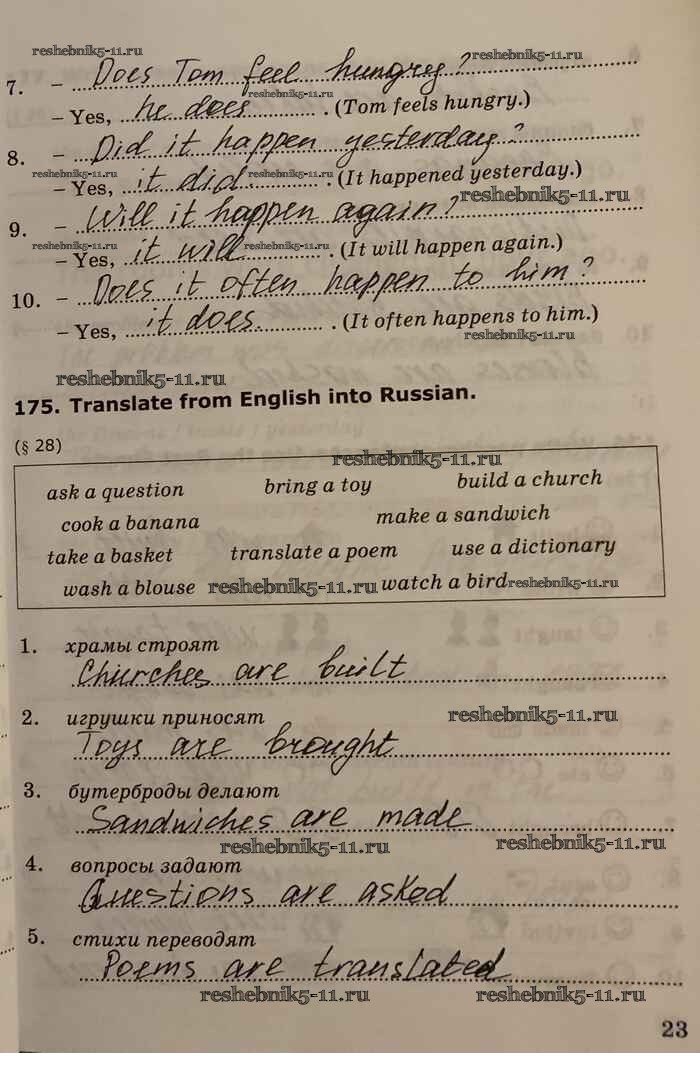 reshebnik5-11.ru reshebnik5-11.ru
7. – Does Tom feel hungry?
reshebnik5-11.ru
– Yes, he does. (Tom feels hungry.)
8. – Did it happen yesterday?
reshebnik5-11.ru reshebnik5-11.ru
– Yes, it did. (It happened yesterday.)
reshebnik5-11.ru
9. – Will it happen again?
reshebnik5-11.ru reshebnik5-11.ru
– Yes, it will. (It will happen again.)
10. – Does it often happen to him?
– Yes, it does. (It often happens to him.)
reshebnik5-11.ru
reshebnik5-11.ru
175. Translate from English into Russian.
(§ 28)
reshebnik5-11.ru
ask a question bring a toy build a church
cook a banana make a sandwich
take a basket translate a poem use a dictionary
wash a blouse reshebnik5-11.ru watch a bird reshebnik5-11.ru
1. храмы строят
Churches are built
2. игрушки приносят reshebnik5-11.ru
Toys are brought
3. бутерброды делают
Sandwiches are made
reshebnik5-11.ru reshebnik5-11.ru
4. вопросы задают
Questions are asked
5. стихи переводят
Poems are translated
reshebnik5-11.ru reshebnik5-11.ru
23